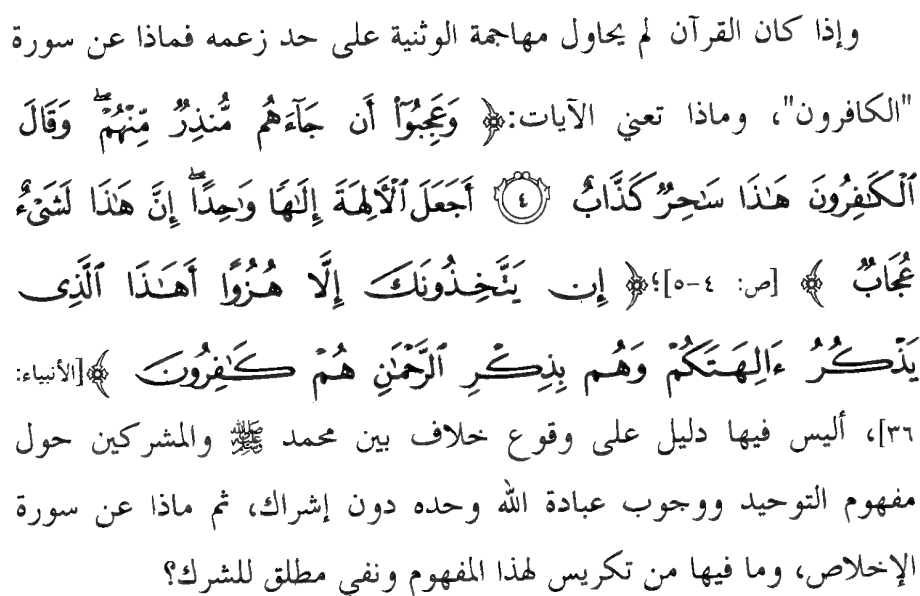 وإذا كان القرآن لم يحاول مهاجمة الوثنية على حد زعمه فماذا عن سورة
"الكافرون"، وماذا تعني الآيات:﴿ وَعَجِبُوٓا۟ أَن جَآءَهُم مُّنذِرٌ مِّنْهُمْ ۖ وَقَالَ
ٱلْكَـٰفِرُونَ هَـٰذَا سَـٰحِرٌ كَذَّابٌ ۝٤ أَجَعَلَ ٱلْـَٔالِهَةَ إِلَـٰهًا وَٰحِدًا ۖ إِنَّ هَـٰذَا لَشَىْءٌ
عُجَابٌ ﴾ [ص: ٤-٥]؛﴿ إِن يَتَّخِذُونَكَ إِلَّا هُزُوًا أَهَـٰذَا ٱلَّذِى
يَذْكُرُ ءَالِهَتَكُمْ وَهُم بِذِكْرِ ٱلرَّحْمَـٰنِ هُمْ كَـٰفِرُونَ ﴾[الأنبياء:
٣٦]، أليس فيها دليل على وقوع خلاف بين محمد ﷺ والمشركين حول
مفهوم التوحيد ووجوب عبادة الله وحده دون إشراك، ثم ماذا عن سورة
الإخلاص، وما فيها من تكريس لهذا المفهوم ونفي مطلق للشرك؟